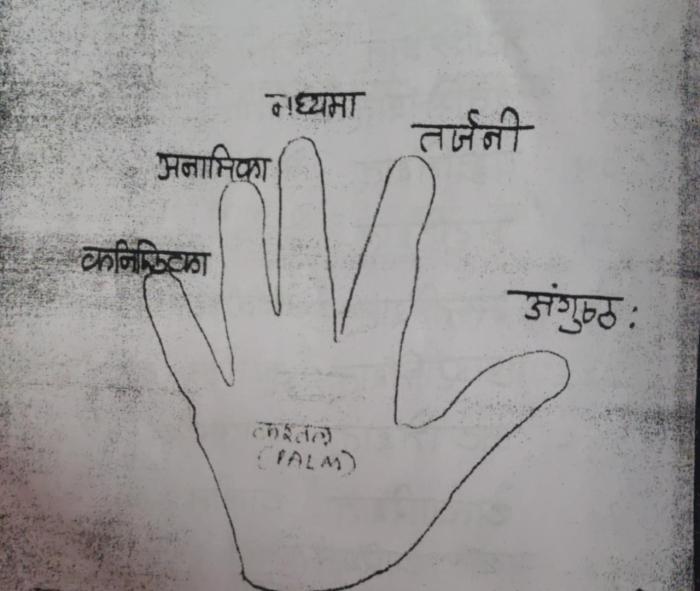 मध्यमा
तर्जनी
अनामिका
कनिष्ठिका
अंगुष्ठ:
करतल
(PALM)